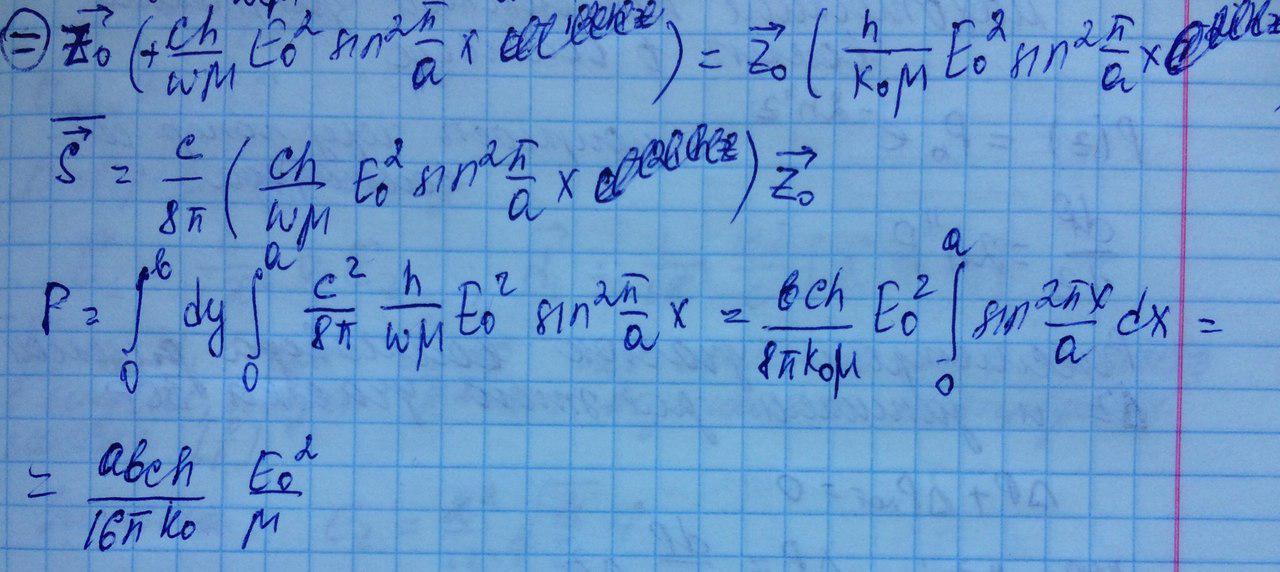 = z⃗₀ (+ ch/ωμ E₀² sin² π/a x) = z⃗₀ ( h/k₀μ E₀² sin² π/a x
S⃗ = c/8π ( ch/ωμ E₀² sin² π/a x ) z⃗₀
P = ∫₀ᵇ dy ∫₀ᵃ c²/8π h/ωμ E₀² sin² π/a x = bch/8πk₀μ E₀² ∫₀ᵃ sin² πx/a dx =
= abch/16πk₀ E₀²/μ